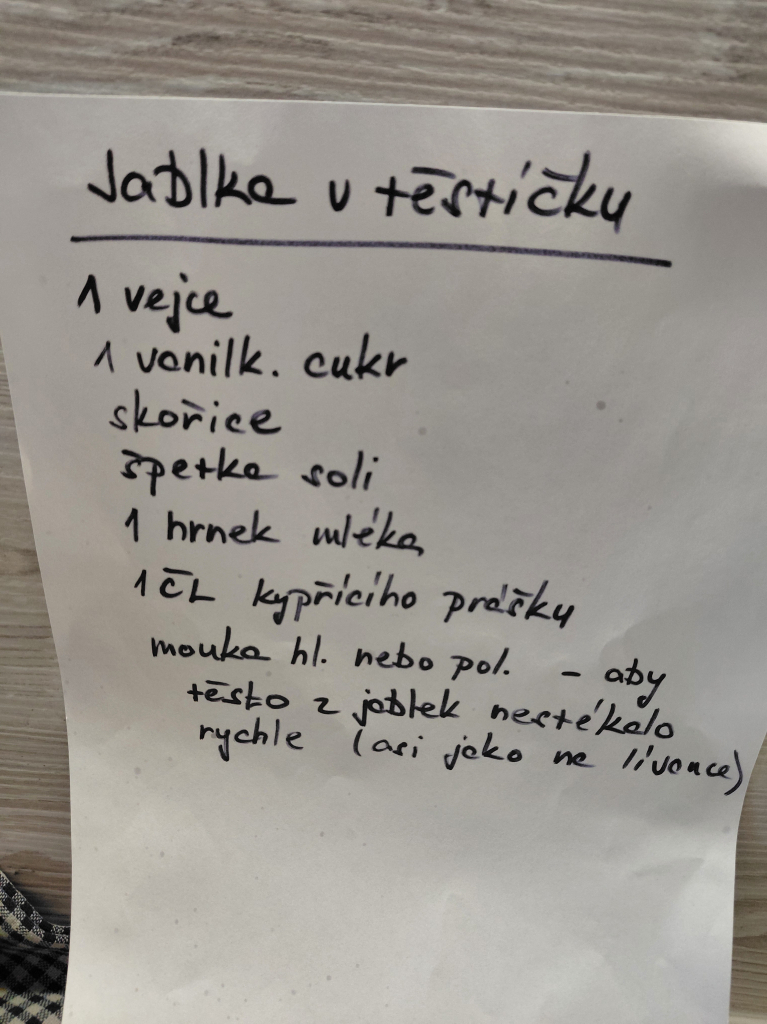 Jablka v těstíčku
1 vejce
1 vanilk. cukr
skořice
špetka soli
1 hrnek mléka
1 ČL kypřícího prášku
mouka hl. nebo pol. – aby
těsto z jablek nestékalo
rychle (asi jako na lívance)